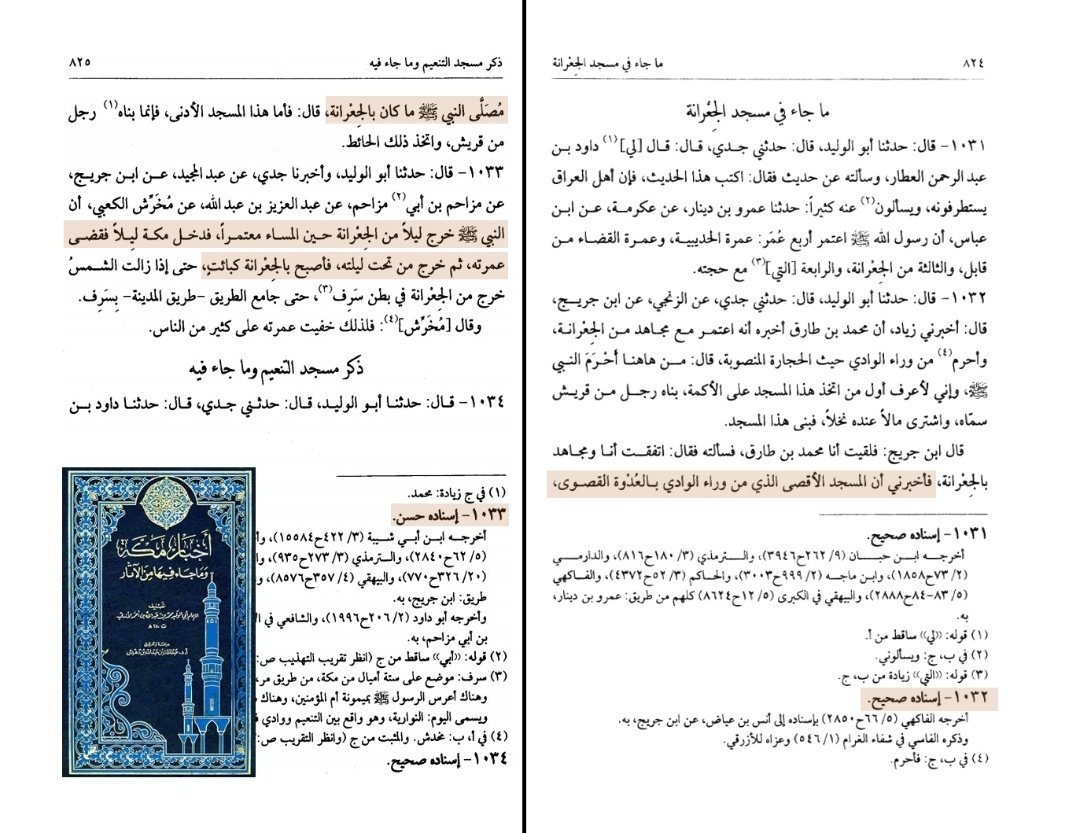 ٨٢٤ ما جاء في مسجد الجِعْرانة
ما جاء في مسجد الجِعْرانة
١٠٣١- قال: حدثنا أبو الوليد، قال: حدثني جدي، قال: قال [لي](١) داود بن
عبد الرحمن العطار، وسألته عن حديث فقال: اكتب هذا الحديث، فإن أهل العراق
يستطرفونه، ويسألون(٢) عنه كثيراً: حدثنا عمرو بن دينار، عن عكرمة، عن ابن
عباس، أن رسول الله ﷺ اعتمر أربع عُمَر: عمرة الحديبية، وعمرة القضاء من
قابل، والثالثة من الجِعْرانة، والرابعة [التي](٣) مع حجته.
١٠٣٢- قال: حدثنا أبو الوليد، قال: حدثني جدي، عن الزنجي، عن ابن جريج،
قال: أخبرني زياد، أن محمد بن طارق أخبره أنه اعتمر مع مجاهد من الجِعْرانة،
وأحرم(٤) من وراء الوادي حيث الحجارة المنصوبة، قال: من هاهنا أحْرَمَ النبي
ﷺ، وإني لأعرف أول من اتخذ هذا المسجد على الأكمة، بناه رجل من قريش
سمّاه، واشترى مالاً عنده نخلاً، فبنى هذا المسجد.
قال ابن جريج: فلقيت أنا محمد بن طارق، فسألته فقال: اتفقت أنا ومجاهد
بالجِعْرانة، فأخبرني أن المسجد الأقصى الذي من وراء الوادي بالعُدْوة القصوى،
١٠٣١- إسناده صحيح.
أخرجه ابن حبان (٩/ ٢٦٢ح٣٩٤٦)، والترمذي (٣/ ١٨٠ح٨١٦)، والدارمي
(٢/ ٧٣ح١٨٥٨)، وابن ماجه (٢/ ٩٩٩ح٣٠٠٣)، والحاكم (٣/ ٥٢ح٤٣٧٢)، والفاكهي
(٥/ ٨٣-٨٤ح٢٨٨٨)، والبيهقي في الكبرى (٥/ ١٢ح٨٦٢٤) كلهم من طريق: عمرو بن دينار،
به.
(١) قوله: «لي» ساقط من أ.
(٢) في ب، ج: ويسألوني.
(٣) قوله: «التي» زيادة من ب، ج.
١٠٣٢- إسناده صحيح.
أخرجه الفاكهي (٥/ ٦٦ح٢٨٥٠) بإسناده إلى أنس بن عياض، عن ابن جريج، به.
وذكره الفاسي في شفاء الغرام (١/ ٥٤٦) وعزاه للأزرقي.
(٤) في ب، ج: فأحرم.
ذكر مسجد التنعيم وما جاء فيه ٨٢٥
مُصَلَّى النبي ﷺ ما كان بالجِعْرانة، قال: فأما هذا المسجد الأدنى، فإنما بناه(١) رجل
من قريش، واتخذ ذلك الحائط.
١٠٣٣- قال: حدثنا أبو الوليد، وأخبرنا جدي، عن عبد المجيد، عن ابن جريج،
عن مزاحم بن أبي(٢) مزاحم، عن عبد العزيز بن عبد الله، عن مُخَرِّش الكعبي، أن
النبي ﷺ خرج ليلاً من الجِعْرانة حين المساء معتمراً، فدخل مكة ليلاً فقضى
عمرته، ثم خرج من تحت ليلته، فأصبح بالجِعْرانة كبائتٍ، حتى إذا زالت الشمسُ
خرج من الجِعْرانة في بطن سَرِف(٣)، حتى جامع الطريق -طريق المدينة- بِسَرِف.
وقال [مُخَرِّش](٤): فلذلك خفيت عمرته على كثير من الناس.
ذكر مسجد التنعيم وما جاء فيه
١٠٣٤- قال: حدثنا أبو الوليد، قال: حدثني جدي، قال: حدثنا داود بن
(١) في ج زيادة: محمد.
١٠٣٣- إسناده حسن.
أخرجه ابن أبي شيبة (٣/ ٤٢٢ح١٥٥٨٤)،
(٥/ ٦٢ح٢٨٤٠)، والترمذي (٣/ ٢٧٣ح٩٣٥)،
(٢٠/ ٣٢٦ح٧٧٠)، والبيهقي (٤/ ٣٥٧ح٨٥٧٦)،
طريق: ابن جريج، به.
وأخرجه أبو داود (٢/ ٢٠٦ح١٩٩٦)، والشافعي في
بن أبي مزاحم، به.
(٢) قوله: «أبي» ساقط من ج (انظر تقريب التهذيب ص:
(٣) سرف: موضع على ستة أميال من مكة، من طريق مر،
وهناك أعرس الرسول ﷺ بميمونة أم المؤمنين، وهناك
ويسمى اليوم: النوارية، وهو واقع بين التنعيم ووادي
(٤) في أ، ب: مخدش. والمثبت من ج (وانظر التقريب ص:
١٠٣٤- إسناده صحيح.
أخبار مكة
وما جاء فيها من الآثار
تصنيف